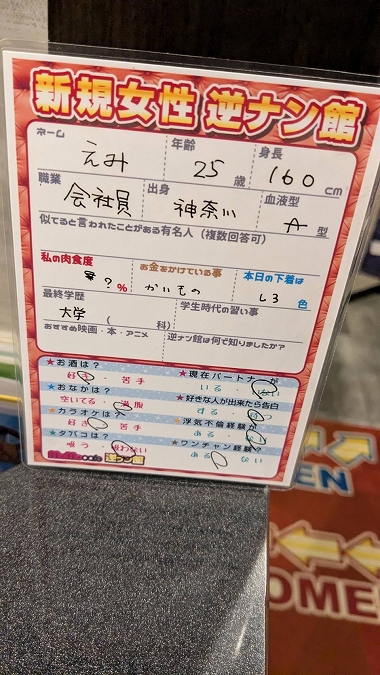 新規女性 逆ナン館
ネーム 年齢 身長
えみ 25 歳 160 cm
職業 出身 血液型
会社員 神奈川 A 型
似てると言われたことがある有名人(複数回答可)
私の肉食度 お金をかけている事 本日の下着は
? % かいもの しろ 色
最終学歴 学生時代の習い事
大学 ( 科)
おすすめ映画・本・アニメ 逆ナン館は何で知りましたか?
★お酒は? ★現在パートナーが
好き・苦手 いる・ない
★おなかは? ★好きな人が出来たら告白
空いてる・満腹 する・
★カラオケは? ★浮気不倫経験が
好き・苦手 ある・
★タバコは? ★ワンチャン経験が
吸う・吸わない ある・ない
逆ナン館
EN
OMEN